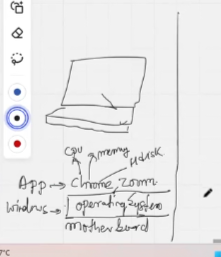 CPU memory Hdisk
App → Chrome, Zoom
Windows → operating System
Motherboard
°C